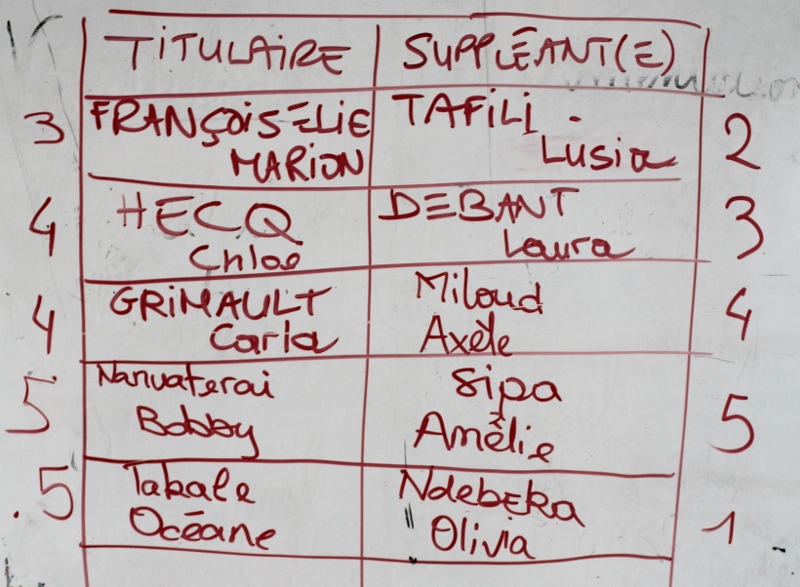 TITULAIRE SUPPLÉANT(E)
3 FRANÇOISELIE TAFILI . 2
MARION Lusia
4 HECQ DEBANT 3
Chloe Laura
4 GRIMAULT Miloud 4
Carla Axèle
5 Narvaterai Sipa 5
Bobby Amélie
.5 Takale Ndebeka 1
Océane Olivia